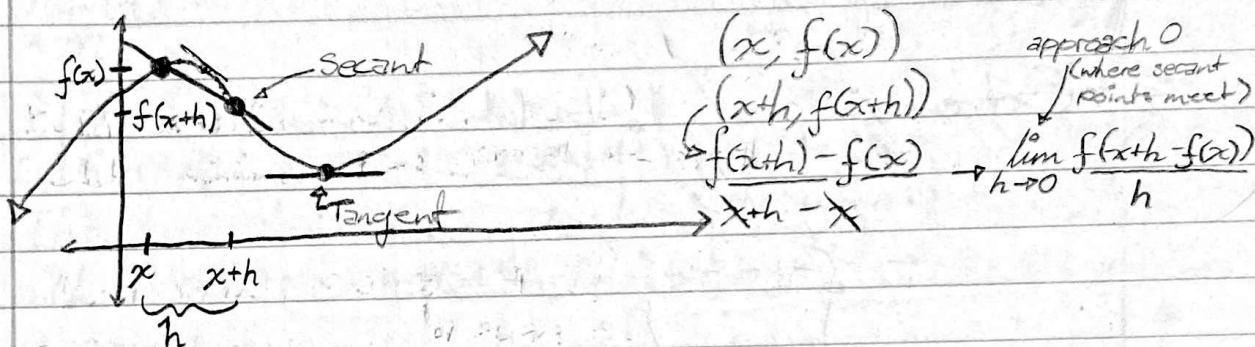 f(x)
f(x+h)
Secant
Tangent
x x+h
h
(x, f(x))
(x+h, f(x+h))
f(x+h) - f(x)
x+h - x
approach 0
(where secant
points meet)
lim f(x+h - f(x))
h→0 h